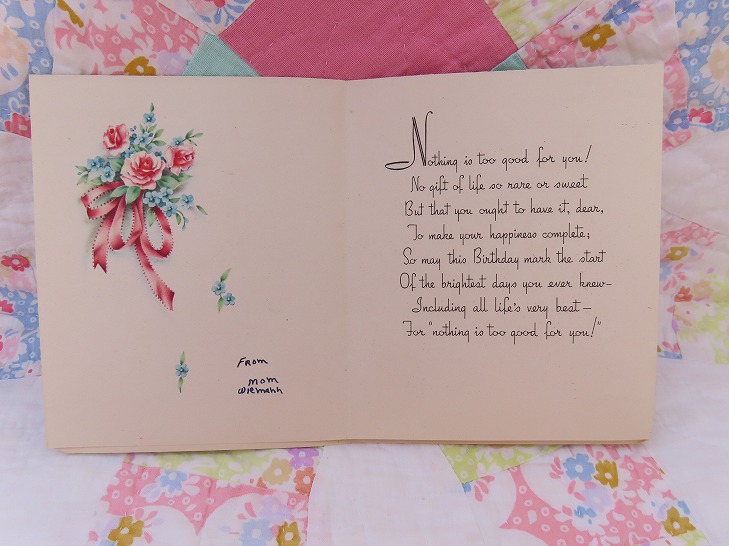 From
mom
Wiemann
Nothing is too good for you!
No gift of life so rare or sweet
But that you ought to have it, dear,
To make your happiness complete;
So may this Birthday mark the start
Of the brightest days you ever knew—
Including all life's very best—
For "nothing is too good for you!"